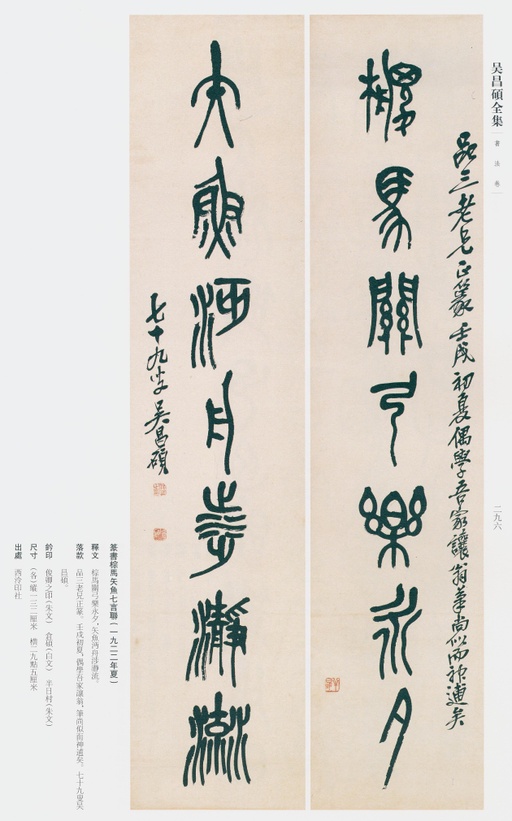 吴昌碩全集
書法卷
二九六
品三老兄正篆壬戌初夏偶學吾家讓翁筆尚似而神遠矣
棕馬關弓樂永夕
矢魚沔舟涉瀞流
七十九叟吴昌碩
篆書棕馬矢魚七言聯(一九二二年夏)
釋文 棕馬關弓樂永夕,矢魚沔舟涉瀞流。
落款 品三老兄正篆。壬戌初夏,偶學吾家讓翁,筆尚似而神遠矣。七十九叟吴
昌碩。
鈐印 俊卿之印(朱文) 倉碩(白文) 半日村(朱文)
尺寸 (各)縱一三二厘米 橫二九點五厘米
出處 西泠印社